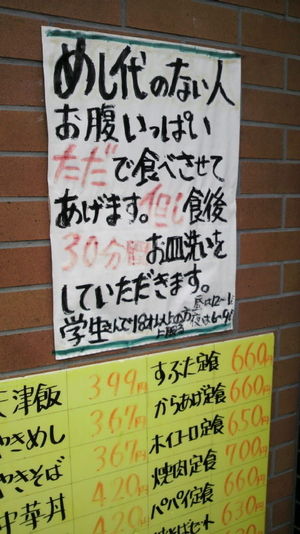 めし代のない人
お腹いっぱい
ただで食べさせて
あげます。但し食後
30分間お皿洗いを
していただきます。
学生さんで18才以上の方
に限る
天津飯 399円
やきめし 367円
やきそば 367円
中華丼 420円
すぶた定食 660円
からあげ定食 660円
ホイコーロ定食 650円
焼肉定食 700円
パパイ定食 660円